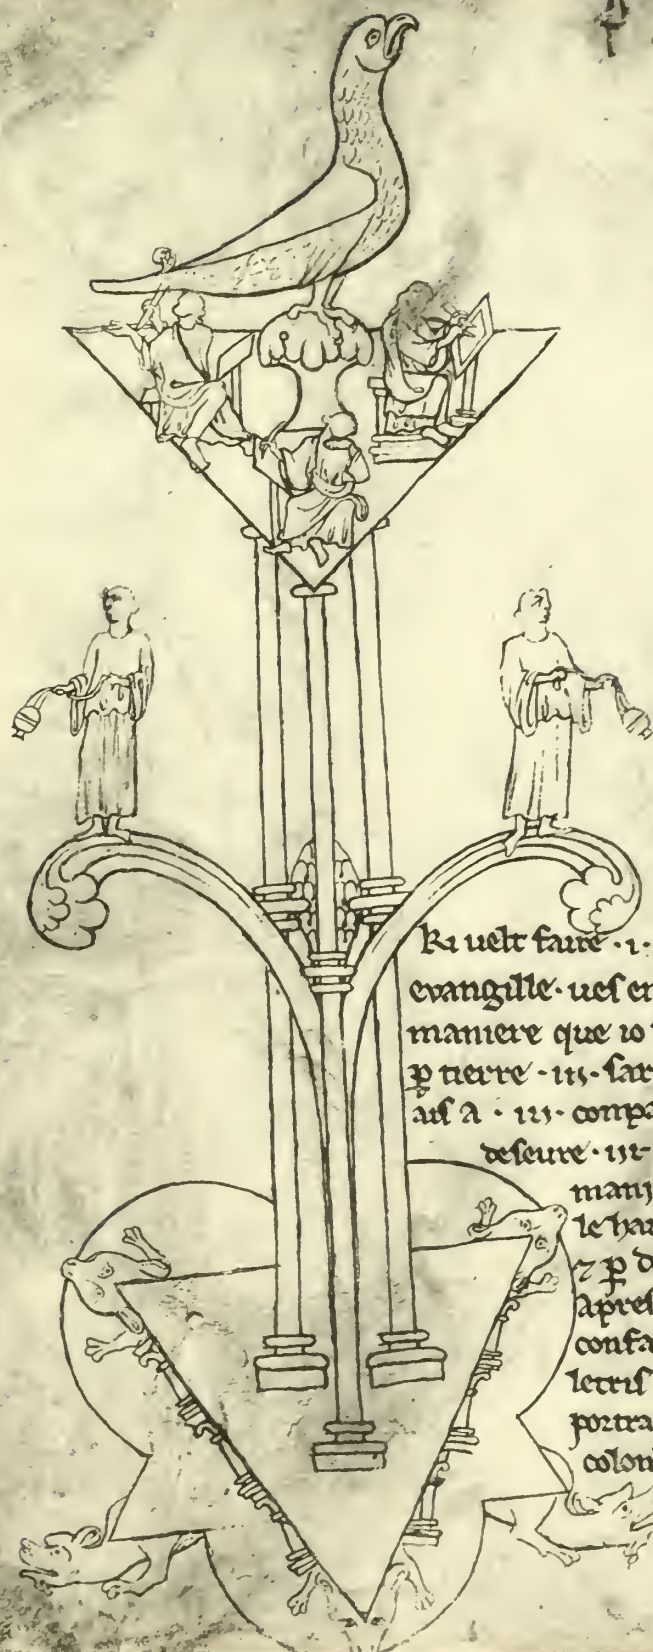 Ki uelt faire · i ·
evangille · ueſ en
maniere que io
p̱ tierre · iii · ſar
aiſ a · iii · conpa
deſeure · iii
mani
le hau
⁊ p̱ d
apreſ
confa
letriſ
portra
colon